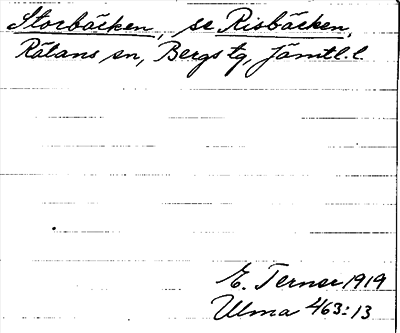 Storbäcken, se Risbäcken,
Rätans sn, Bergs tg, Jämtl. l.
E. Terner 1919
Ulma 463:13